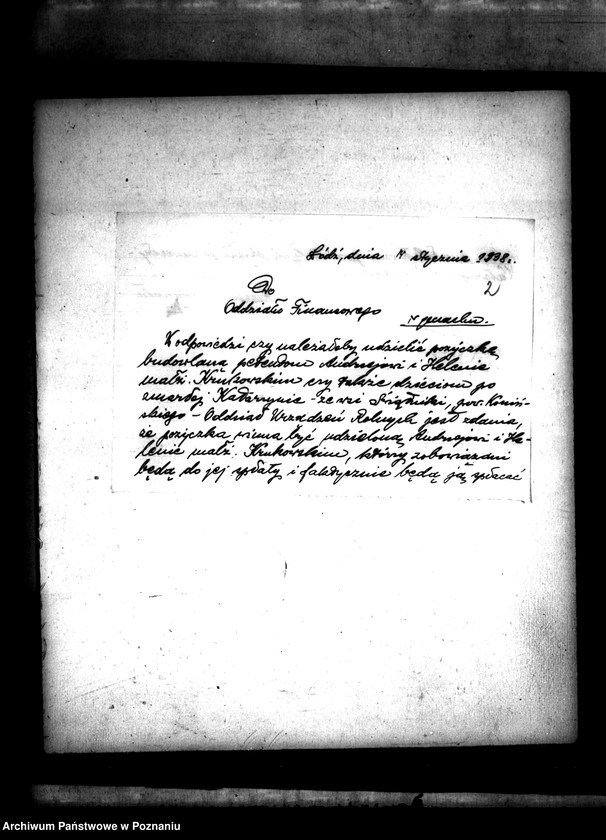 Łódź, dnia stycznia 1938.
2
Do
Oddziału Finansowego
w gmachu.
W odpowiedzi czy należałoby udzielić pożyczkę
budowlaną petentom Andrzejowi i Helenie
małż. Krukowskim czy także dzieciom po
zmarłej Katarzynie ze wsi pow. Koniń-
skiego - Oddział Urządzeń Rolnych jest zdania,
że pożyczka winna być udzielona Andrzejowi i He-
lenie małż. Krukowskim, którzy zobowiązani
będą do jej spłaty i faktycznie będą ją spłacać
Archiwum Państwowe w Poznaniu